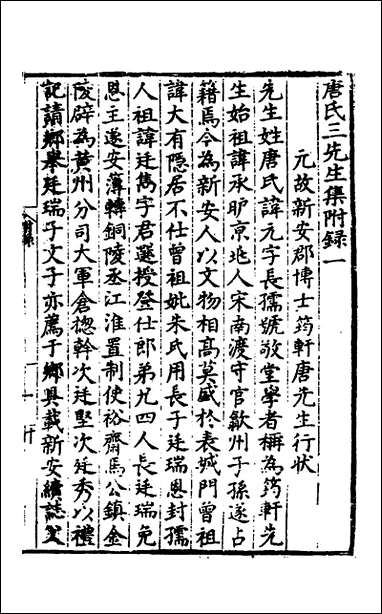 唐氏三先生集附録一
元故新安郡博士筠軒唐先生行狀
先生姓唐氏諱元字長孺號敬堂學者稱為筠軒先
生始祖諱承 京兆人宋南渡守官歙州子孫遂占
籍焉今為新安人以文物相髙莫盛於表城門曽祖
諱大有隠居不仕曽祖妣朱氏用長子廷瑞恩封孺
人祖諱廷雋字君選授登仕郎弟兄四人長廷瑞免
恩主遂安薄轉銅陵丞江淮置制使裕齋馬公鎮金
陵辟為黄州分司大軍倉揔幹次廷堅次廷秀以禮
記請鄉舉廷瑞子文子亦薦于鄉具載新安續誌